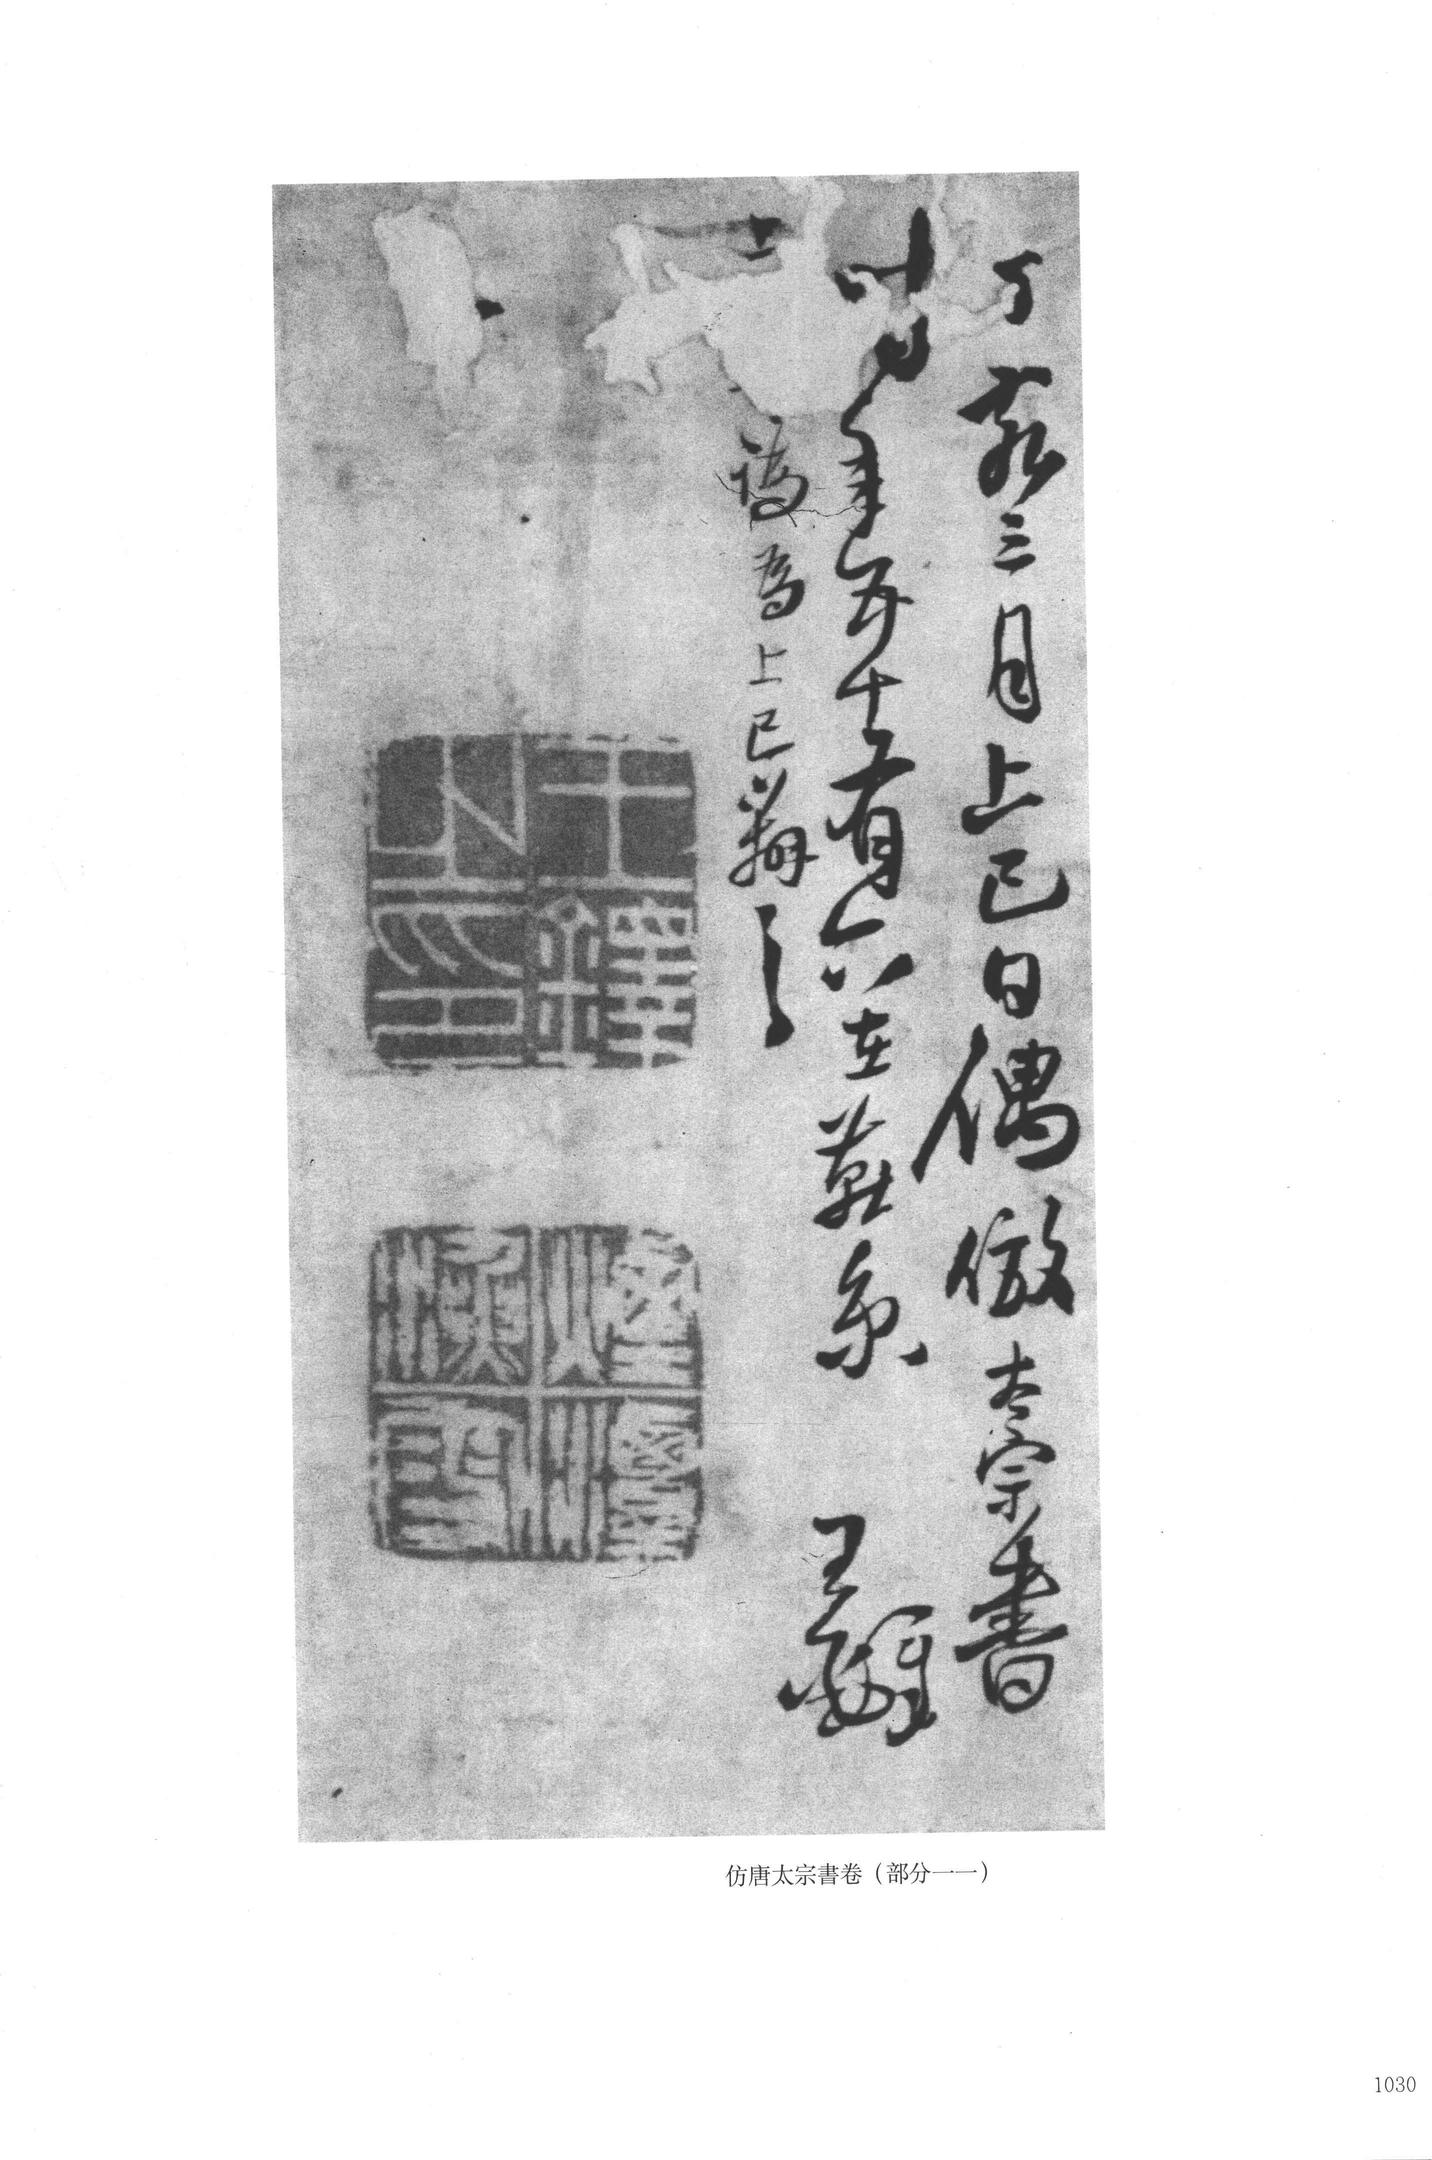 丁亥三月上巳日偶倣太宗書
時年五十有六在燕京 王鐸
上 譌為上巳辨之
王鐸之印
仿唐太宗書卷（部分一一）
1030